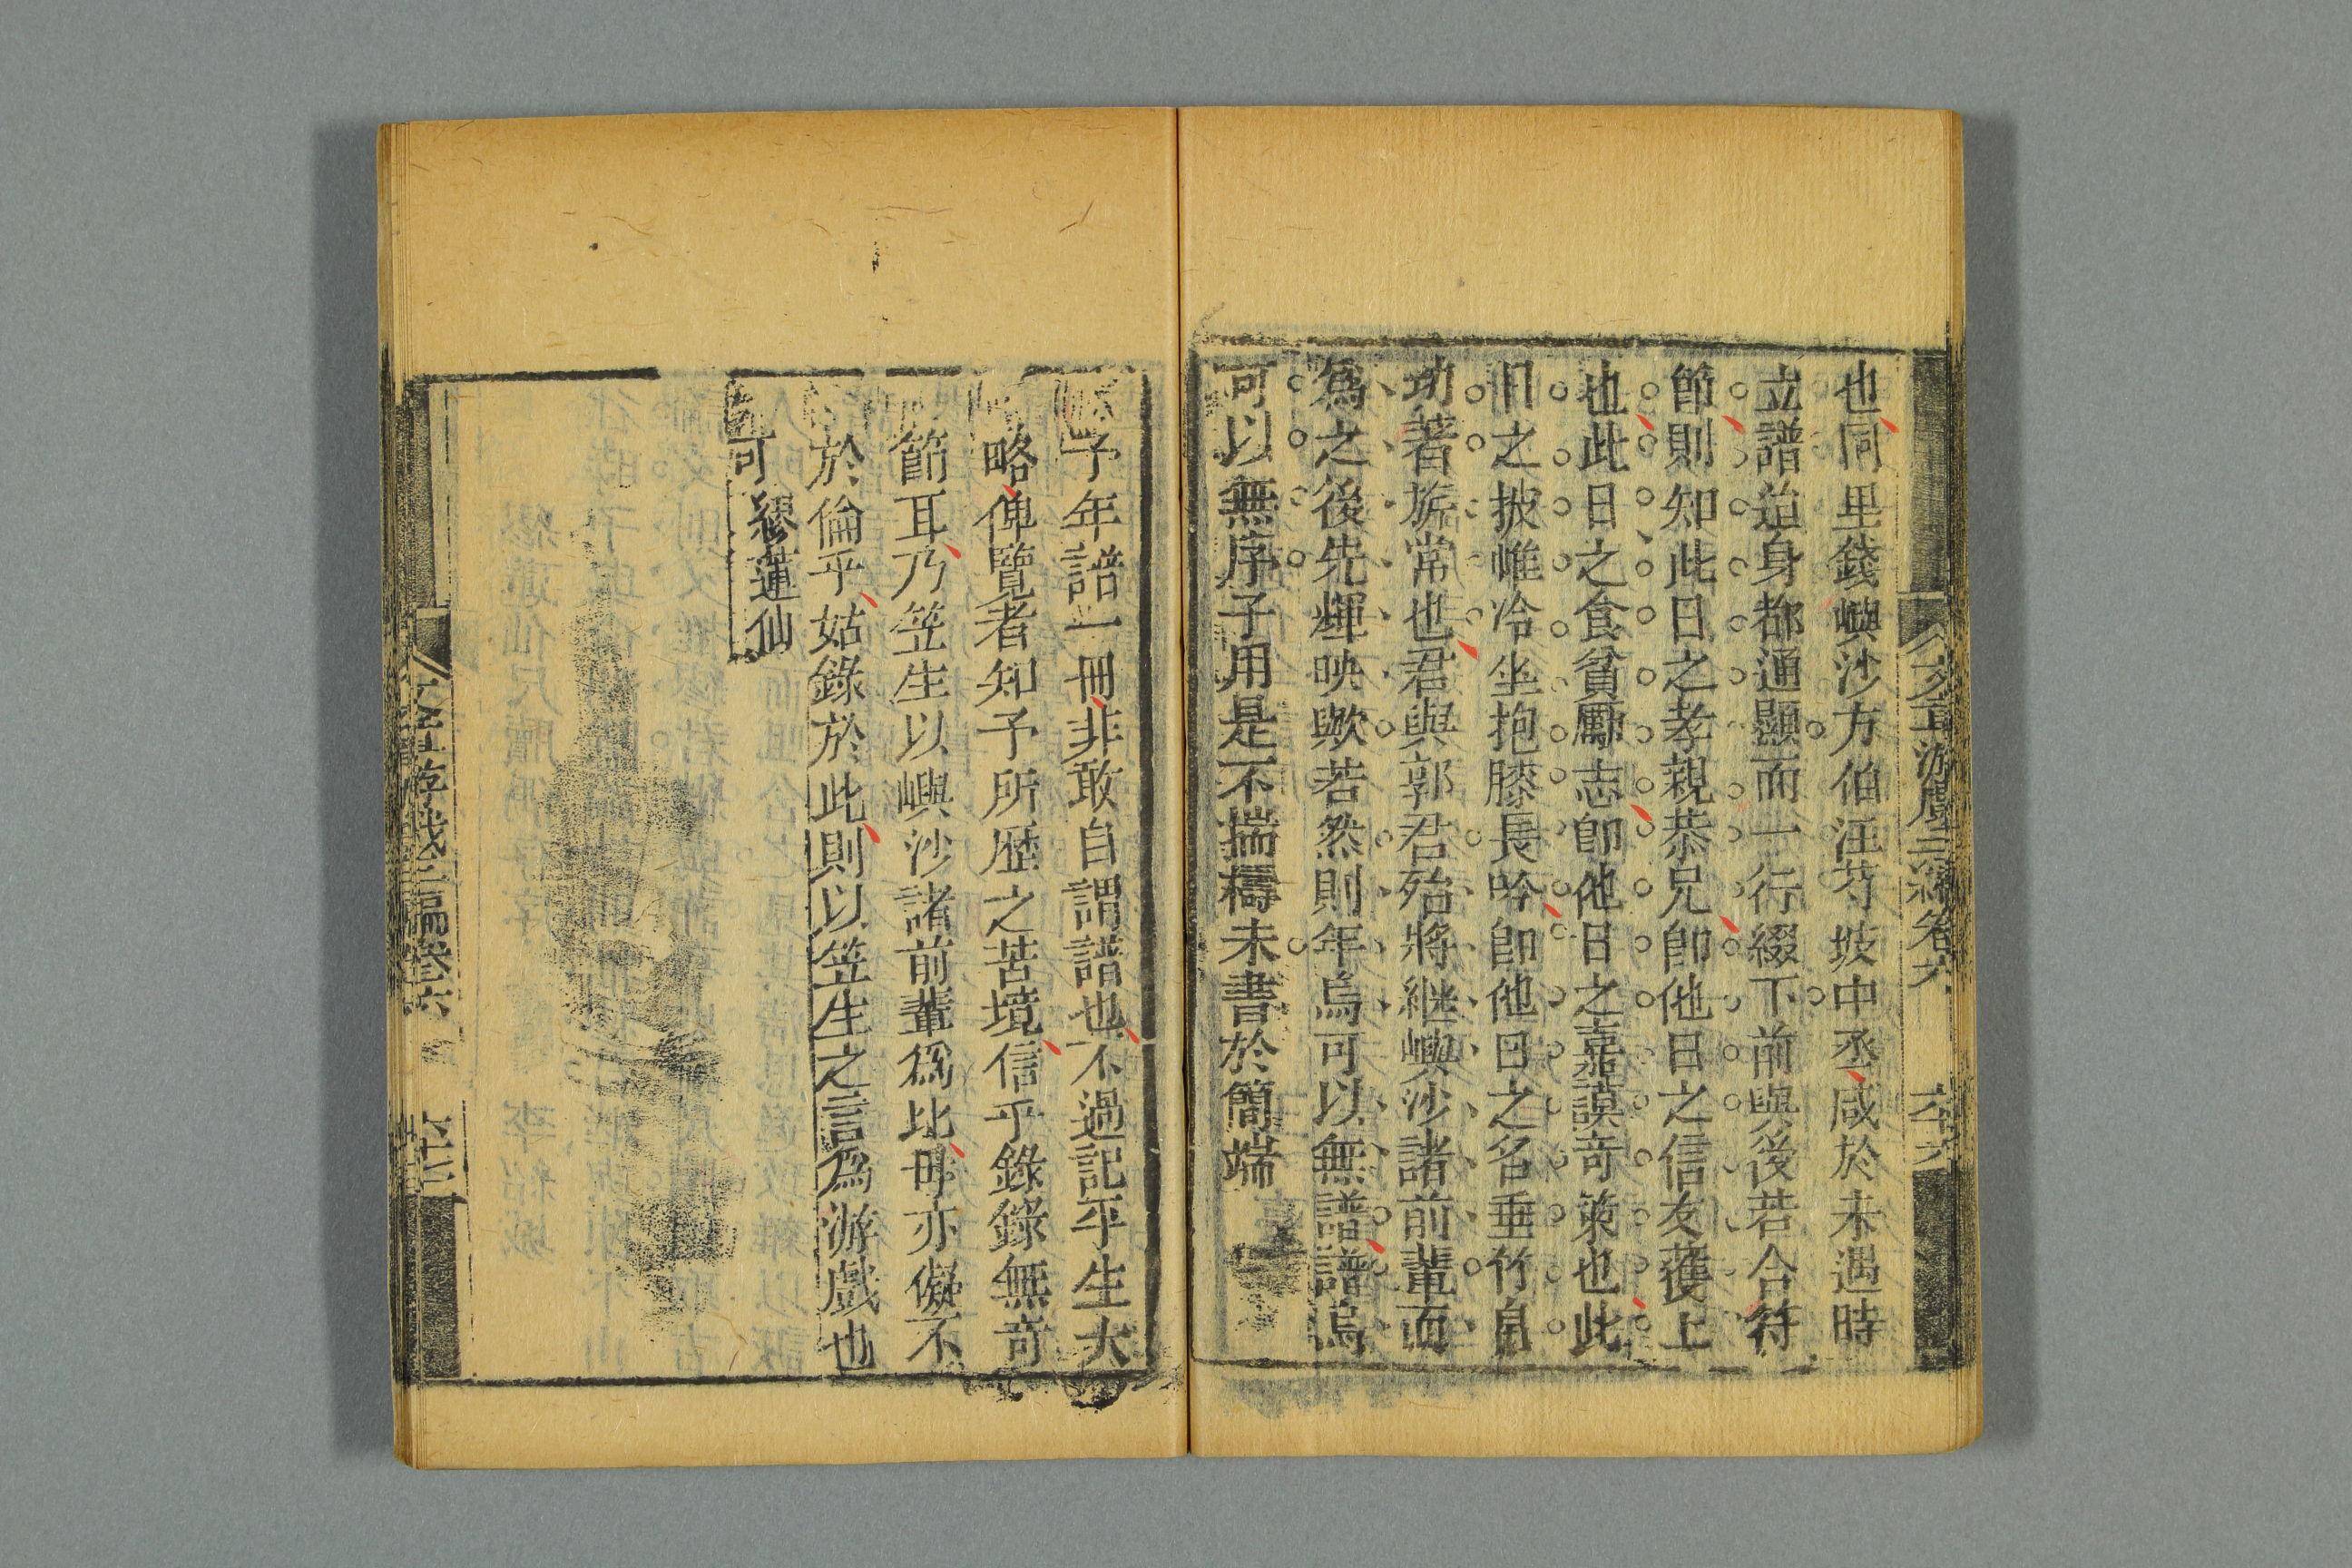 文章游戲三編卷六 六十六
也同里錢嶼沙方伯汪芍坡中丞咸於未遇時
立譜迨身都通顯而一行綴下前與後若合符
節則知此日之孝親恭兄卽他日之信友獲上
也此日之食貧勵志卽他日之嘉謨奇策也此
日之披帷冷坐抱膝長吟卽他日之名垂竹帛
功著旂常也君與郭君殆將繼嶼沙諸前輩而
爲之後先輝映歟若然則年烏可以無譜譜烏
可以無序予用是不揣檮未書於簡端
予年譜一冊非敢自謂譜也不過記平生大
略俾覽者知予所歷之苦境信乎錄錄無奇
節耳乃笠生以嶼沙諸前輩爲比毋亦儗不
於倫乎姑錄於此則以笠生之言爲游戲也
可 繆蓮仙
文章游戲三編卷六